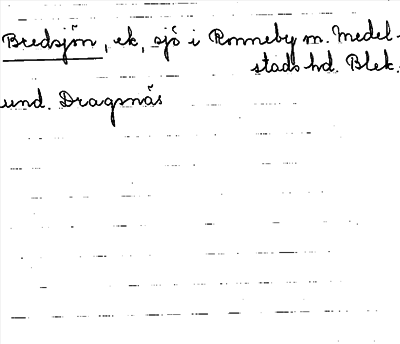 Bredsjön, ek, sjö i Ronneby m. Medel-
stads hd. Blek.
und. Dragsnäs